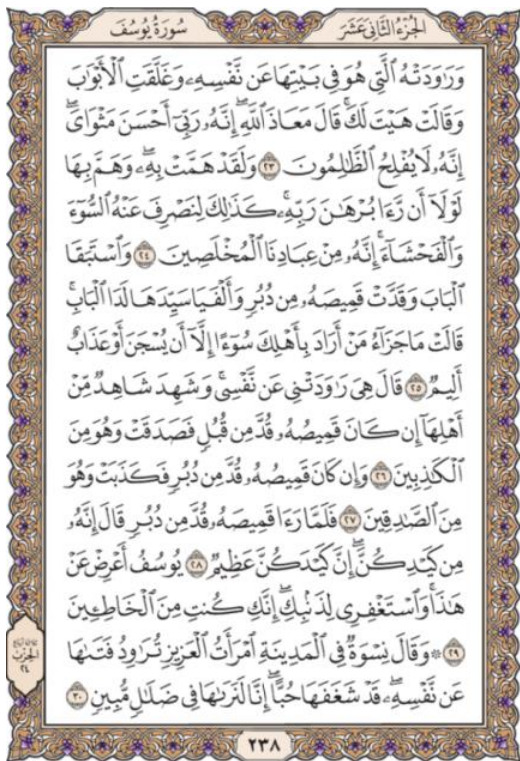 الجُزْءُ الثَّانِي عَشَرَ
سُورَةُ يُوسُفَ
وَرَٰوَدَتْهُ ٱلَّتِي هُوَ فِي بَيْتِهَا عَن نَّفْسِهِۦ وَغَلَّقَتِ ٱلْأَبْوَٰبَ
وَقَالَتْ هَيْتَ لَكَۚ قَالَ مَعَاذَ ٱللَّهِۖ إِنَّهُۥ رَبِّيٓ أَحْسَنَ مَثْوَايَۖ
إِنَّهُۥ لَا يُفْلِحُ ٱلظَّٰلِمُونَ ٢٣ وَلَقَدْ هَمَّتْ بِهِۦۖ وَهَمَّ بِهَا
لَوْلَآ أَن رَّءَا بُرْهَٰنَ رَبِّهِۦۚ كَذَٰلِكَ لِنَصْرِفَ عَنْهُ ٱلسُّوٓءَ
وَٱلْفَحْشَآءَۚ إِنَّهُۥ مِنْ عِبَادِنَا ٱلْمُخْلَصِينَ ٢٤ وَٱسْتَبَقَا
ٱلْبَابَ وَقَدَّتْ قَمِيصَهُۥ مِن دُبُرٖ وَأَلْفَيَا سَيِّدَهَا لَدَا ٱلْبَابِۚ
قَالَتْ مَا جَزَآءُ مَنْ أَرَادَ بِأَهْلِكَ سُوٓءًا إِلَّآ أَن يُسْجَنَ أَوْ عَذَابٌ
أَلِيمٞ ٢٥ قَالَ هِيَ رَٰوَدَتْنِي عَن نَّفْسِيۚ وَشَهِدَ شَاهِدٞ مِّنْ
أَهْلِهَآ إِن كَانَ قَمِيصُهُۥ قُدَّ مِن قُبُلٖ فَصَدَقَتْ وَهُوَ مِنَ
ٱلْكَٰذِبِينَ ٢٦ وَإِن كَانَ قَمِيصُهُۥ قُدَّ مِن دُبُرٖ فَكَذَبَتْ وَهُوَ
مِنَ ٱلصَّٰدِقِينَ ٢٧ فَلَمَّا رَءَا قَمِيصَهُۥ قُدَّ مِن دُبُرٖ قَالَ إِنَّهُۥ
مِن كَيْدِكُنَّۖ إِنَّ كَيْدَكُنَّ عَظِيمٞ ٢٨ يُوسُفُ أَعْرِضْ عَنْ
هَٰذَاۚ وَٱسْتَغْفِرِي لِذَنۢبِكِۖ إِنَّكِ كُنتِ مِنَ ٱلْخَاطِـِٔينَ
٢٩ ۞ وَقَالَ نِسْوَةٞ فِي ٱلْمَدِينَةِ ٱمْرَأَتُ ٱلْعَزِيزِ تُرَٰوِدُ فَتَىٰهَا
عَن نَّفْسِهِۦۖ قَدْ شَغَفَهَا حُبًّاۖ إِنَّا لَنَرَىٰهَا فِي ضَلَٰلٖ مُّبِينٖ ٣٠
الحِزْب
٢٤
٢٣٨